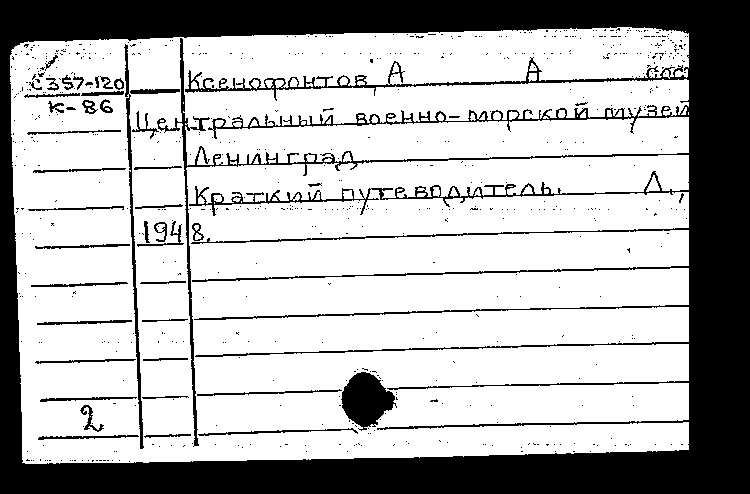 С357-120 Ксенофонтов, А А сост
К-86
Центральный военно-морской музей
Ленинград
Краткий путеводитель. Л.,
1948.
2